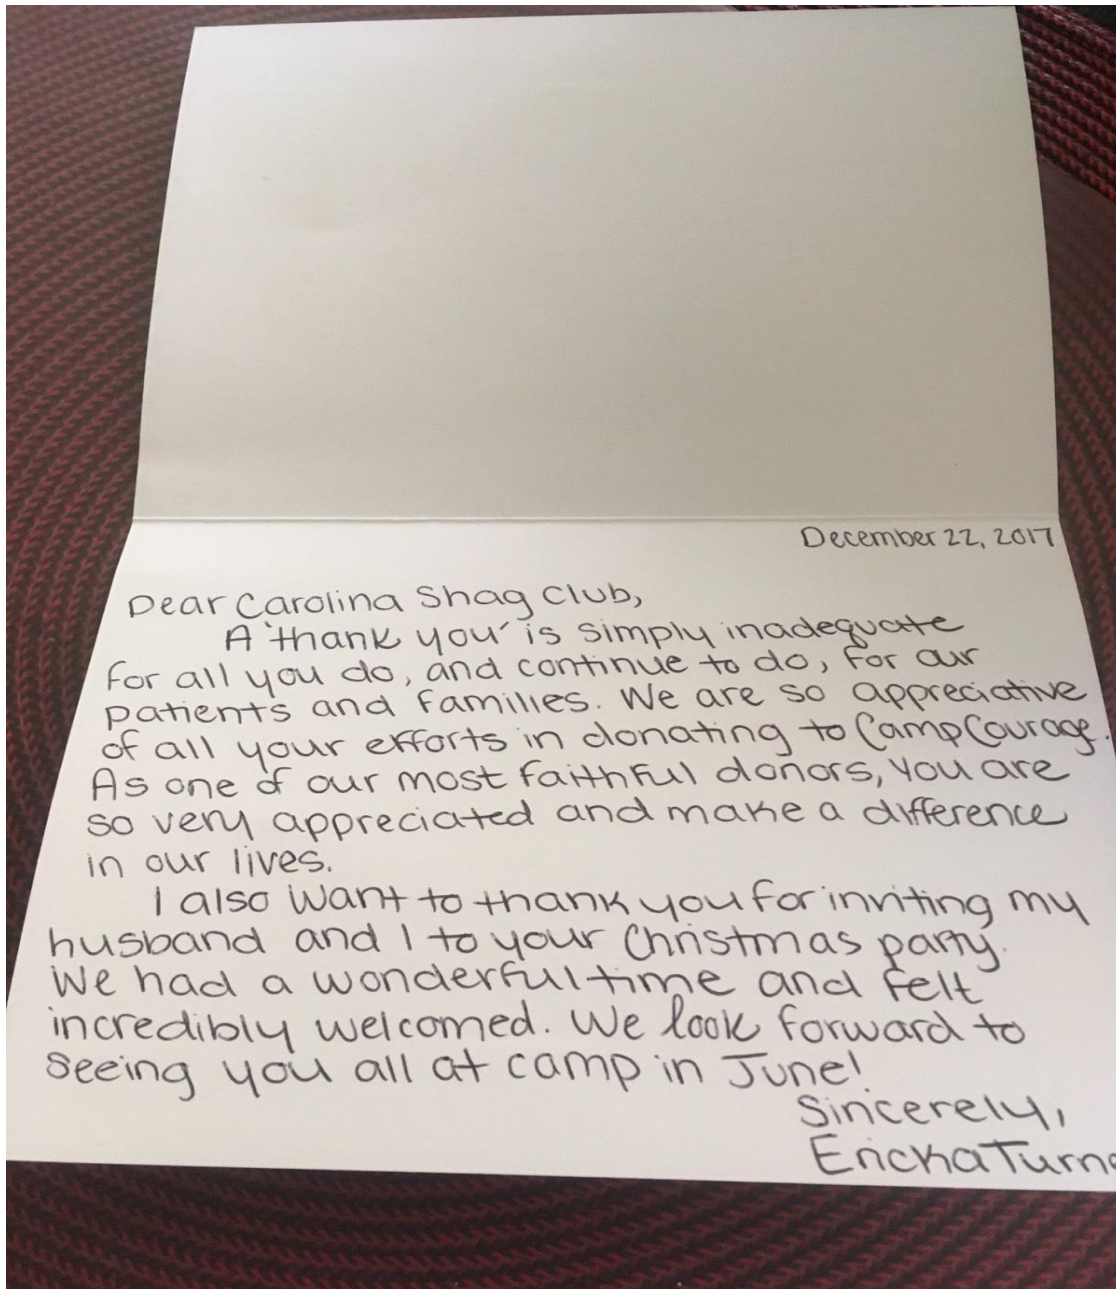 December 22, 2017
Dear Carolina Shag Club,
A 'thank you' is simply inadequate
for all you do, and continue to do, for our
patients and families. We are so appreciative
of all your efforts in donating to Camp Courage.
As one of our most faithful donors, you are
so very appreciated and make a difference
in our lives.
I also want to thank you for inviting my
husband and I to your Christmas party.
We had a wonderful time and felt
incredibly welcomed. We look forward to
seeing you all at camp in June!
Sincerely,
Ericka